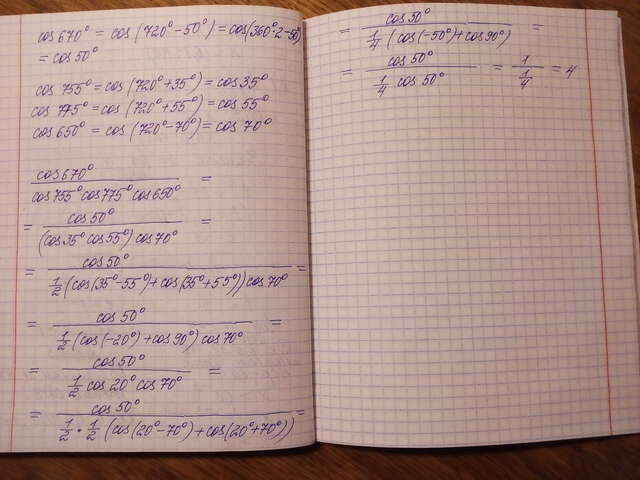 cos 670° = cos (720° - 50°) = cos(360°·2 - 50)
= cos 50°
cos 755° = cos (720° + 35°) = cos 35°
cos 775° = cos (720° + 55°) = cos 55°
cos 650° = cos (720° - 70°) = cos 70°
cos 670°
cos 755° cos 775° cos 650° =
= cos 50°
(cos 35° cos 55°) cos 70° =
= cos 50°
1/2 (cos(35° - 55°) + cos(35° + 55°)) cos 70° =
= cos 50°
1/2 (cos(-20°) + cos 90°) cos 70° =
= cos 50°
1/2 cos 20° cos 70° =
= cos 50°
1/2 · 1/2 (cos(20° - 70°) + cos(20° + 70°)) =
= cos 50°
1/4 (cos(-50°) + cos 90°) =
= cos 50°
1/4 cos 50° = 1 / 1/4 = 4